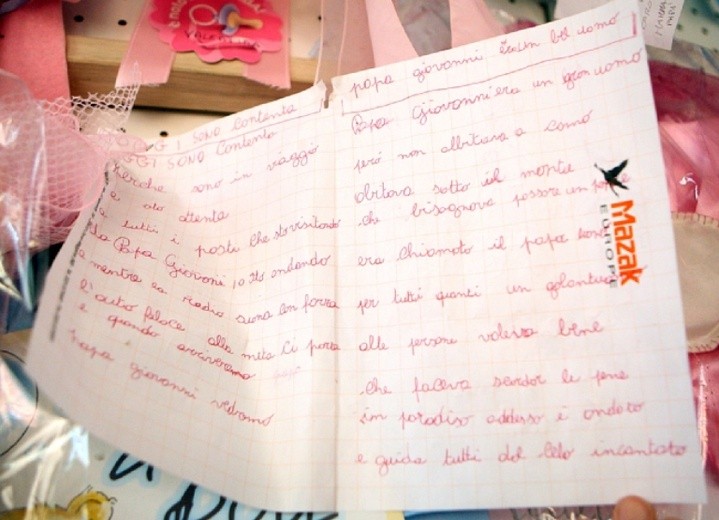 OGGI SONO Contenta
OGGI SONO Contento
perche sono in viaggio
e sto attenta
a tutti i posti che sto visitando
Da Papa Giovanni io sto andando
e mentre la radio suona con forza
l'auto feloce alla meta ci porta
e quando arriveremo
papa giovanni vedremo
papa giovanni era un bel uomo
Papa Giovanni era un gran uomo
però non abitava a como
abitava sotto il monte
che bisognava passare un ponte
era chiamato il papa buono
per tutti quanti un galantuomo
alle persone voleva bene
che faceva scordar le pene
in paradiso addesso è andato
e guida tutti dal cielo incantato
Mazak
EUROPE